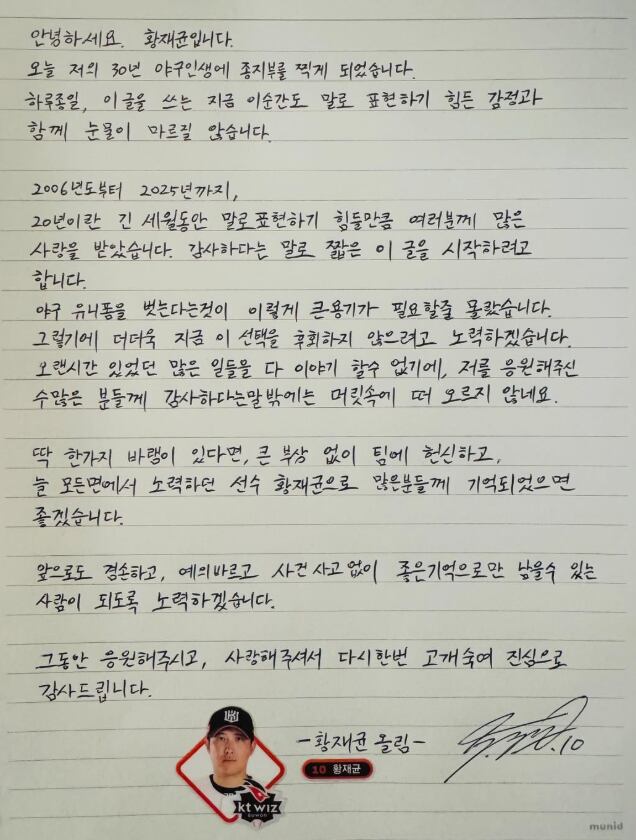 안녕하세요. 황재균입니다.
오늘 저의 30년 야구인생에 종지부를 찍게 되었습니다.
하루종일, 이 글을 쓰는 지금 이순간도 말로 표현하기 힘든 감정과
함께 눈물이 마르질 않습니다.
2006년도부터 2025년까지,
20년이란 긴 세월동안 말로표현하기 힘들만큼 여러분께 많은
사랑을 받았습니다. 감사하다는 말로 짧은 이 글을 시작하려고
합니다.
야구 유니폼을 벗는다는것이 이렇게 큰용기가 필요할줄 몰랐습니다.
그렇기에 더더욱 지금 이 선택을 후회하지 않으려고 노력하겠습니다.
오랜시간 있었던 많은 일들을 다 이야기 할수 없기에, 저를 응원해주신
수많은 분들께 감사하다는말밖에는 머릿속에 떠 오르지 않네요.
딱 한가지 바램이 있다면, 큰 부상 없이 팀에 헌신하고,
늘 모든면에서 노력하던 선수 황재균으로 많은분들께 기억되었으면
좋겠습니다.
앞으로도 겸손하고, 예의바르고 사건 사고 없이 좋은기억으로만 남을수 있는
사람이 되도록 노력하겠습니다.
그동안 응원해주시고, 사랑해주셔서 다시한번 고개숙여 진심으로
감사드립니다.
-황재균 올림-
10 황재균
kt wiz
suwon
.10
munid